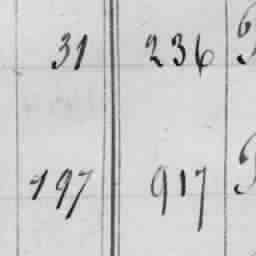 31 236
197 917